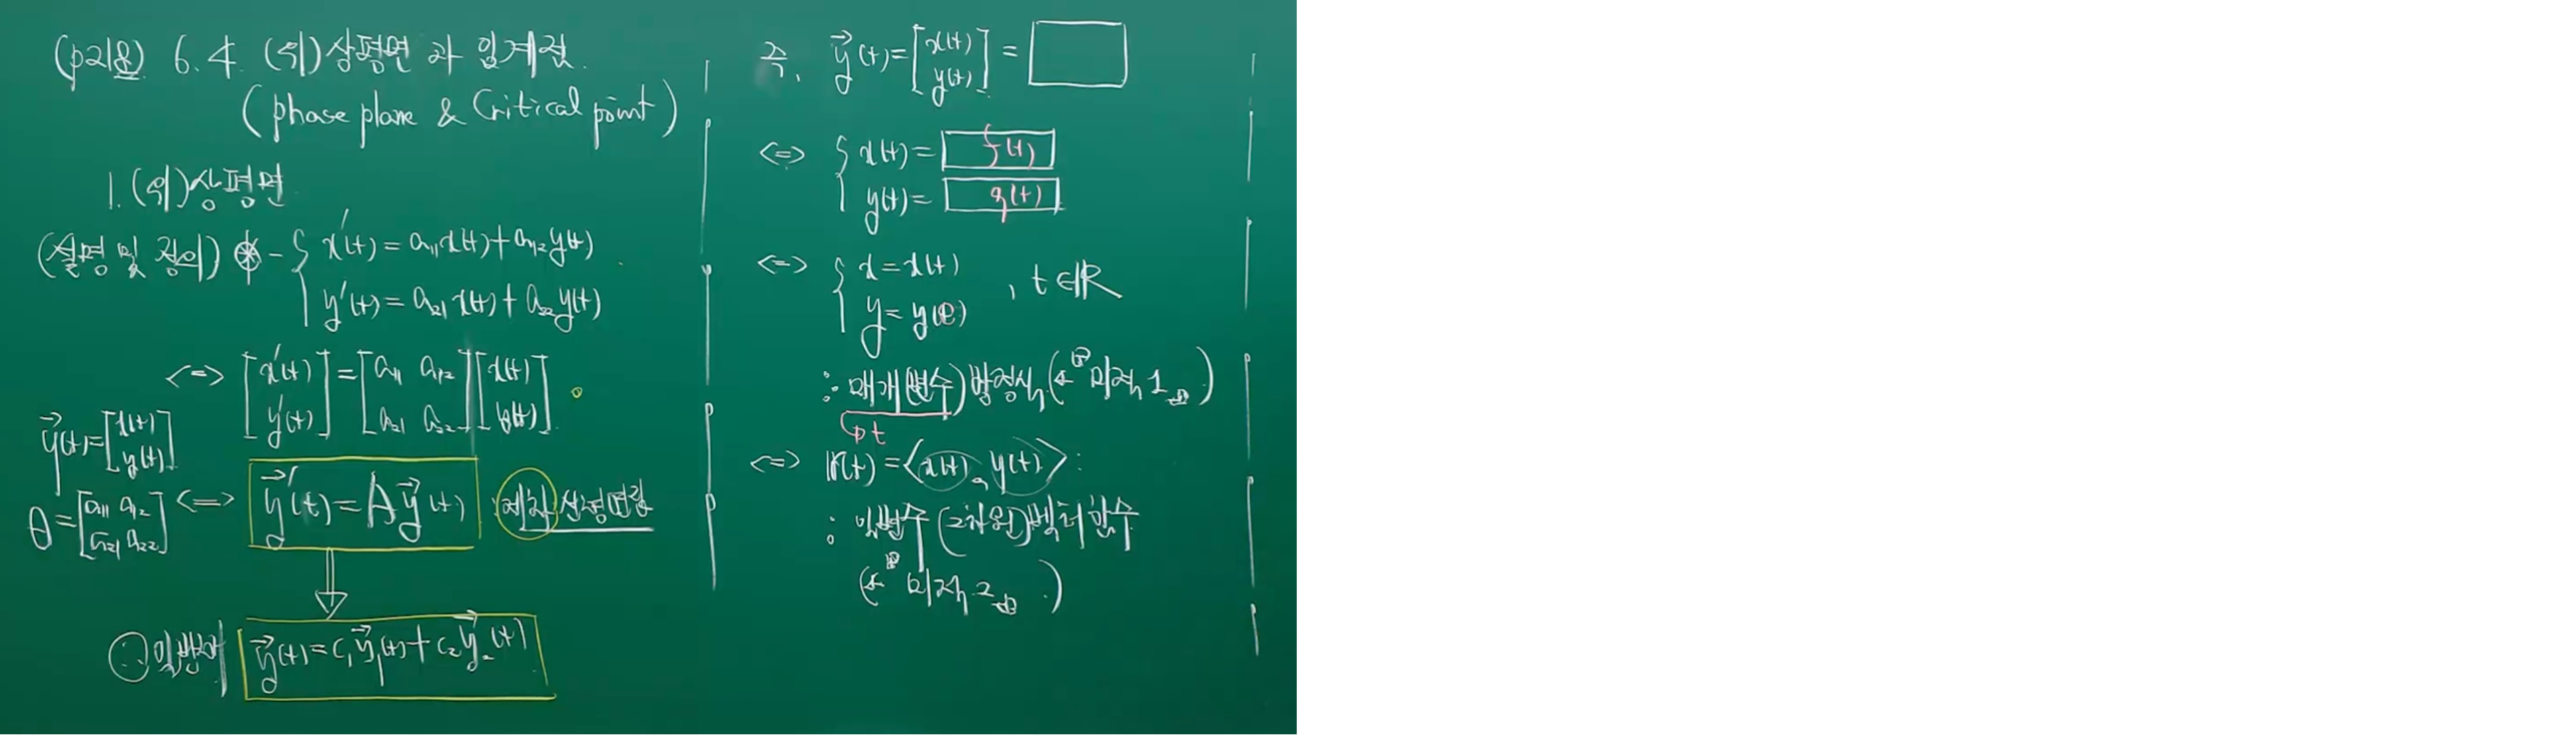 (p218) 6.4 (위)상평면과 임계점.
(phase plane & Critical point)
1. (위)상평면
(설명 및 정의) ⊛ - { x'(t) = a₁₁x(t) + a₁₂y(t)
y'(t) = a₂₁x(t) + a₂₂y(t)
<=> [x'(t) y'(t)] = [a₁₁ a₁₂ a₂₁ a₂₂] [x(t) y(t)]
y⃗(t) = [x(t) y(t)]
A = [a₁₁ a₁₂ a₂₁ a₂₂] <=> y⃗'(t) = A y⃗(t) : 제차 선형연립
∴ 일반해 y⃗(t) = c₁y⃗₁(t) + c₂y⃗₂(t)
즉, y⃗(t) = [x(t) y(t)] =
<=> { x(t) = f(t)
y(t) = g(t)
<=> { x = x(t)
y = y(t) , t ∈ ℝ
: 매개(변수)방정식 (← 미적 1)
t
<=> r(t) = <x(t), y(t)> :
: 일변수 (2차원)벡터함수
(← 미적 2)